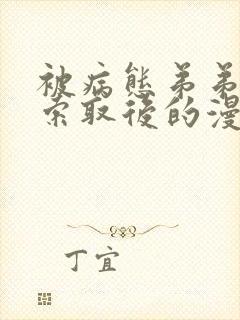 被病態弟弟
索取後的漫
丁宜